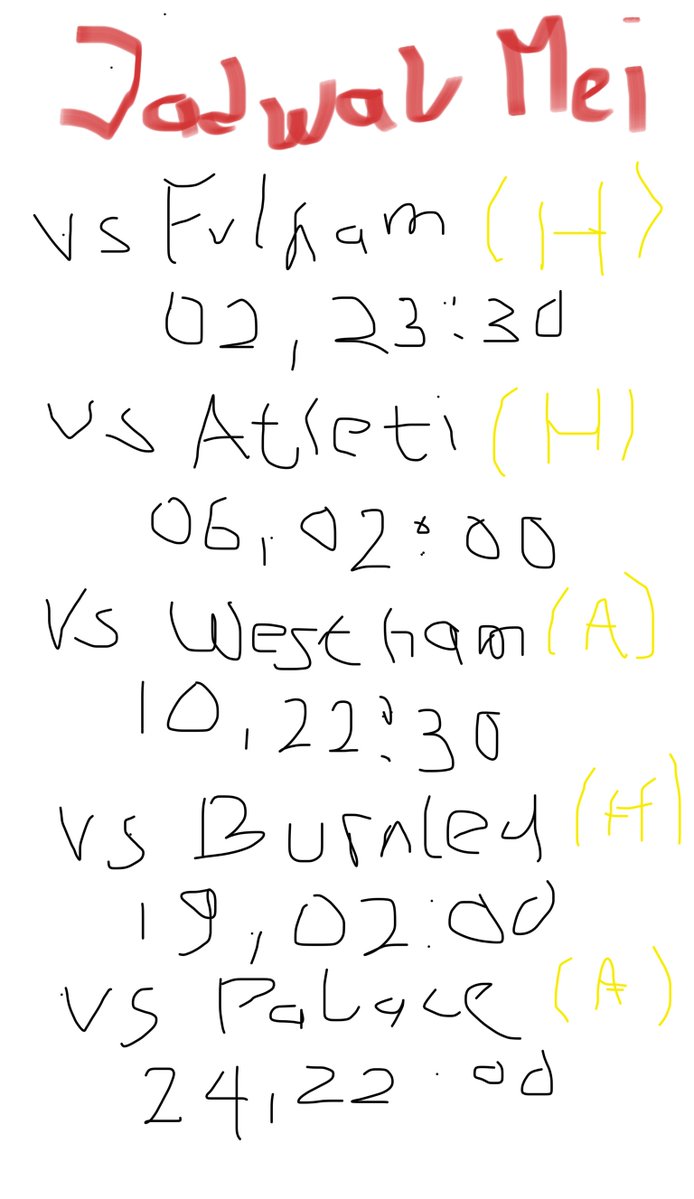 Jadwal Mei
vs Fulham (H)
02, 23:30
vs Atleti (H)
06, 02:00
Vs Westham (A)
10, 22:30
vs Burnley (H)
19, 02:00
vs Palace (A)
24, 22:00